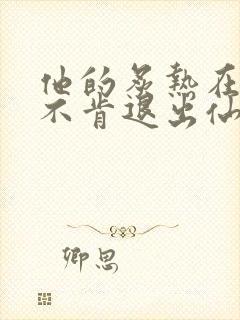 他的炙热在
不肯退出仙
卿思